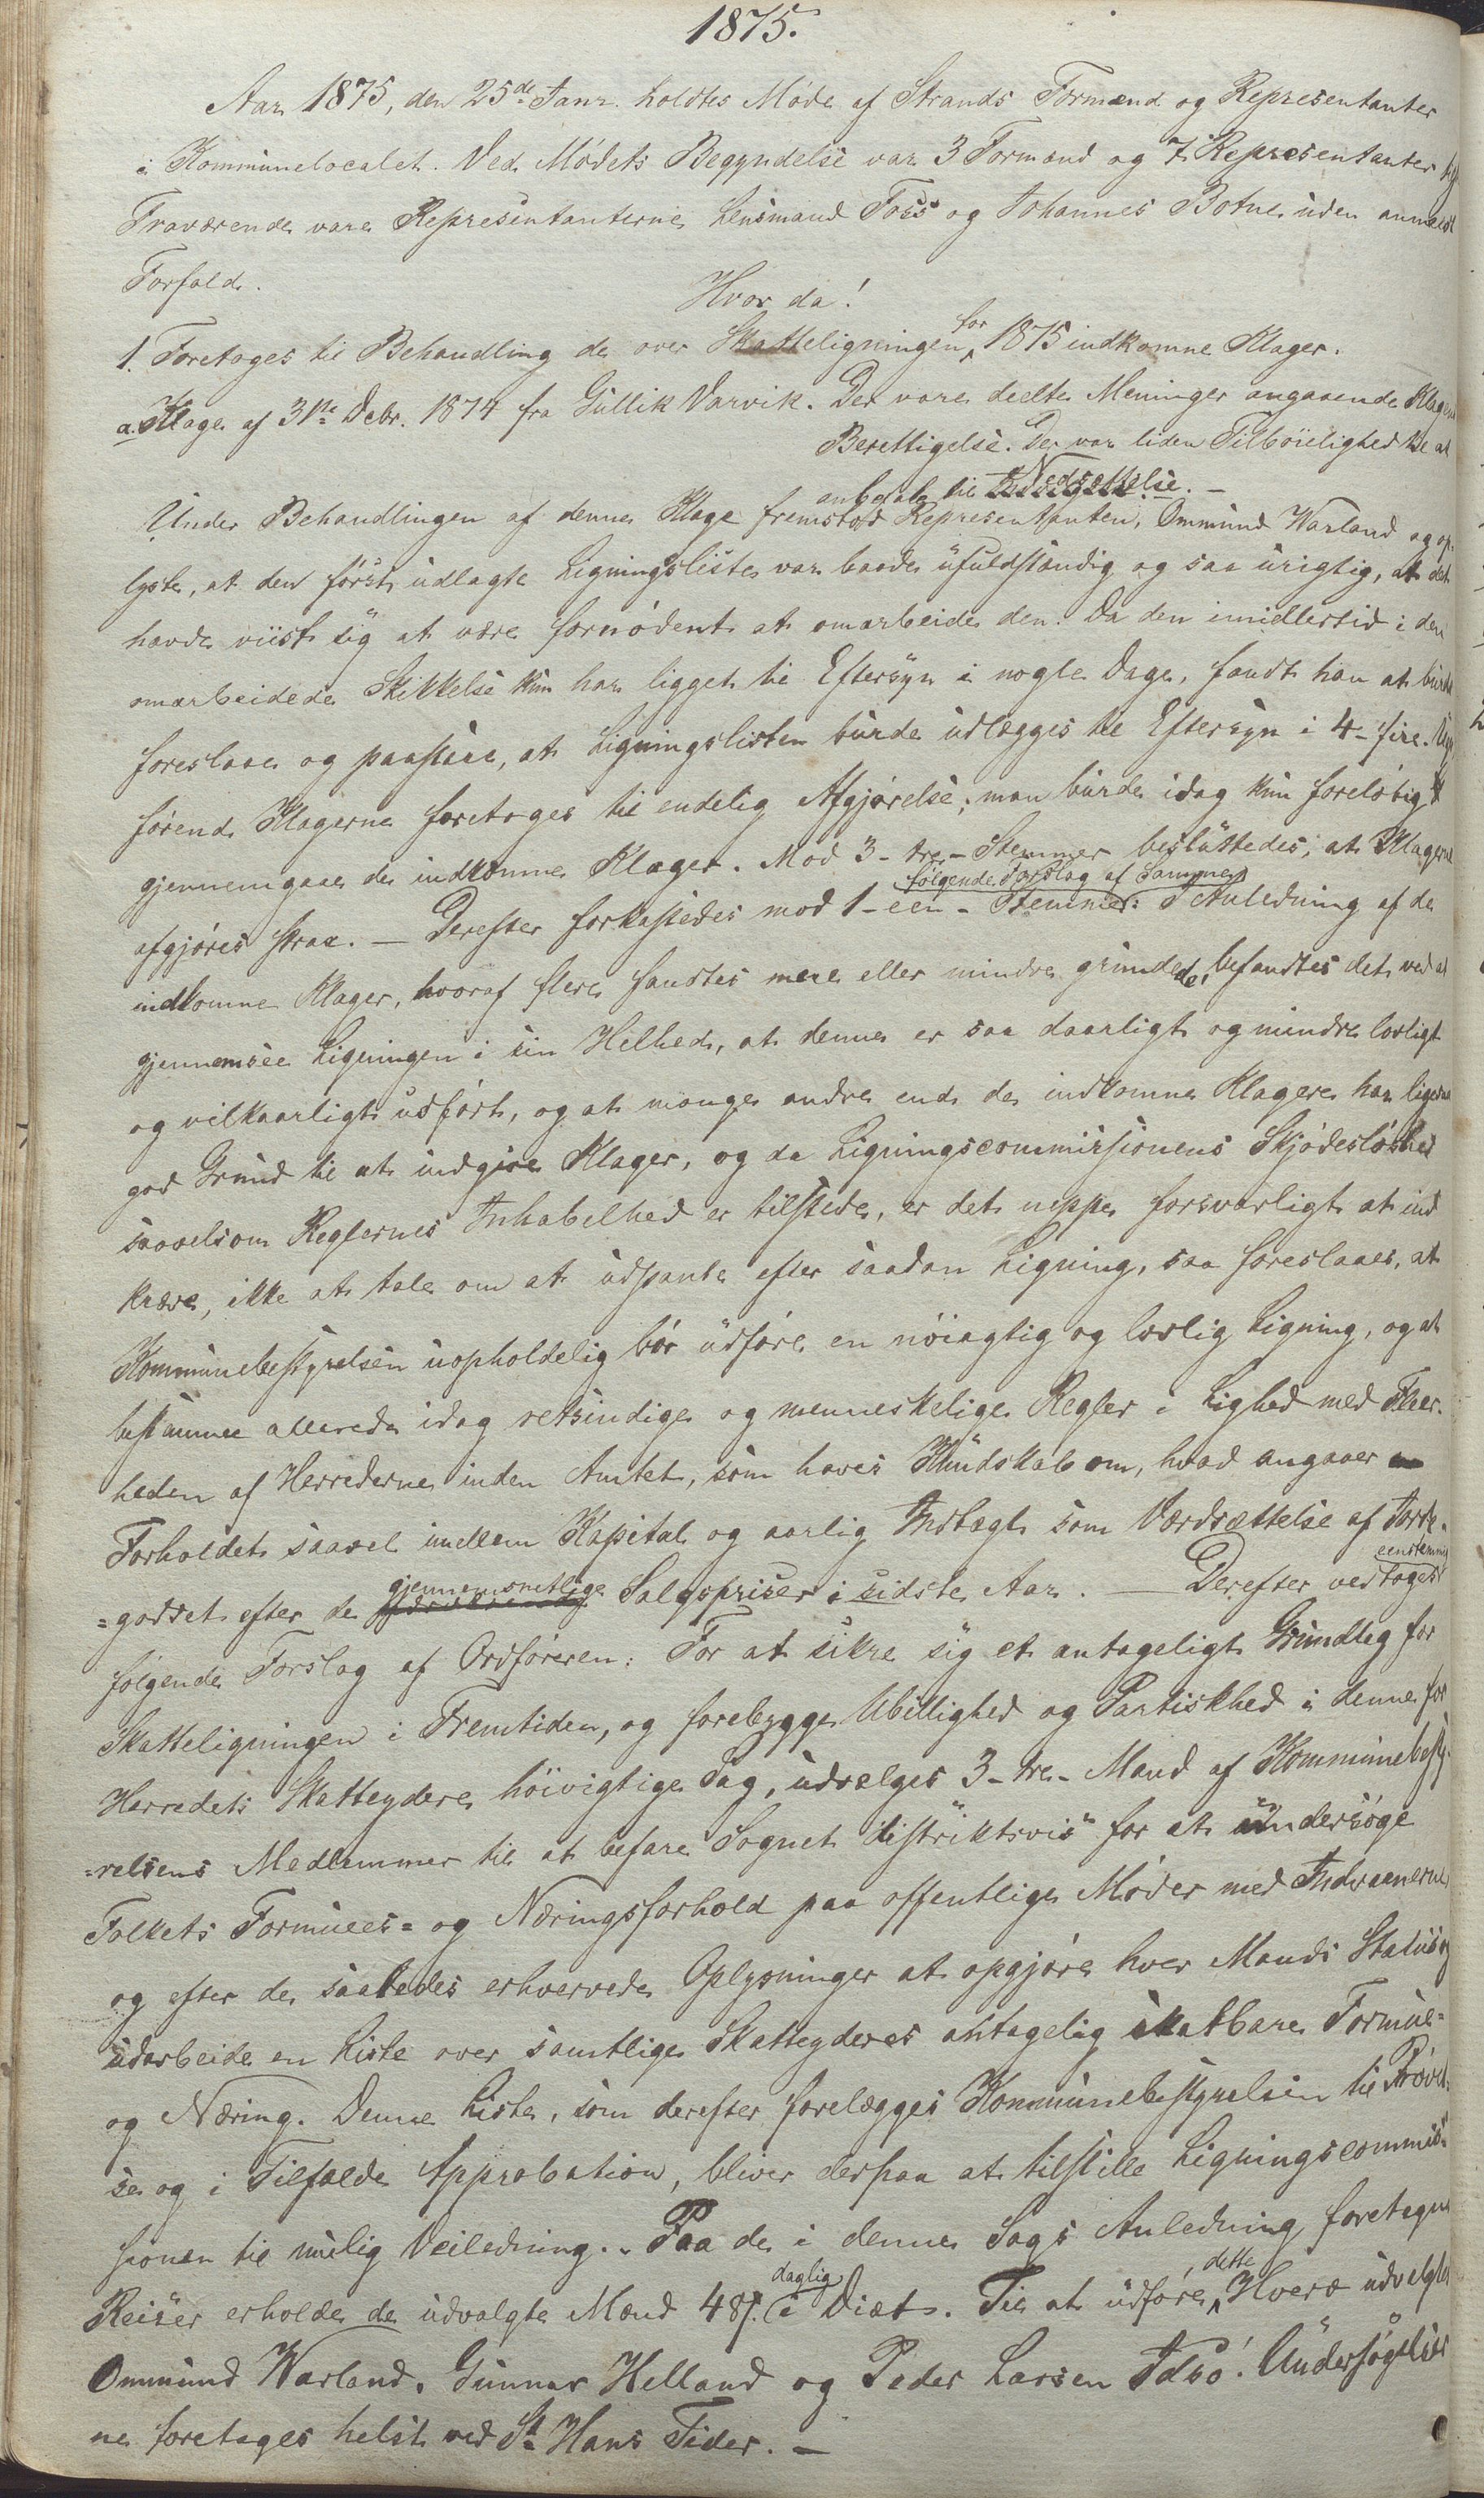 1875.
Aar 1875, den 25de Janr. holdtes Møde af Strands Formænd og Representanter
i Kommunelocalet. Ved Mødets Begyndelse var 3 Formænd og 7 Representanter
Fraværende vare Representanterne Lensmand Foss og Johannes Botne uden anmeldt
Forfald.
Hvor da!
1. Foretoges til Behandling de over Skatteligningen for 1875 indkomne Klager.
a. Klage af 31te Debr. 1874 fra Gullik Varvik. Der vare deelte Meninger angaaende Klagens
Berettigelse. Der var liden Tilbøielighed til at
anbefale til Nedsættelse. –
Under Behandlingen af denne Klage fremstod Representanten, Ommund Warland og op-
lyste, at den først udlagte Ligningsliste var baade ufuldstændig og saa urigtig, at det
havde viist sig at være fornødent at omarbeide den. Da den imidlertid i den
omarbeidede Skikkelse kun har ligget til Eftersyn i nogle Dage, fandt han at burde
foreslaae og paastaae, at Ligningslisten burde udlægges til Eftersyn i 4 – fire – Uger
førend Klagerne foretages til endelig Afgjørelse; man burde idag kun foreløbigt
gjennemgaae de indkomne Klager. Mod 3 – tre – Stemmer besluttedes, at Klagerne
afgjøres strax. — Derefter forkastedes mod 1 – een – Stemmer følgende Forslag af samme: I Anledning af de
indkomne Klager, hvoraf flere fandtes mere eller mindre grundede, befandtes det ved at
gjennemsee Ligningen i sin Helhed, at denne er saa daarligt og mindre lovligt
og vilkaarligt udført, og at mange andre end de indkomne Klagere har ligesaa
god Grund til at indgive Klager, og da Ligningscommissionens Skjødesløshed
saavelsom Reglernes Inhabilhed er tilstede, er det neppe forsvarligt at ind
kræve, ikke at tale om at udpante efter saadan Ligning, saa foreslaaes, at
Kommunebestyrelsen uopholdelig bør udføre en nøiagtig og lovlig Ligning, og at
bestemme allerede idag retsindige og menneskelige Regler i Lighed med Fleer-
heden af Herrederne inden Amtet, som haves Kundskab om, hvad angaaer
Forholdet saavel imellem Kapital og aarlig Indtægt som Værdsættelse af Jorde-
=godset efter de gjennemsnitlige Salgspriser i sidste Aar. — Derefter vedtoges eenstemmig
følgende Forslag af Ordføreren: For at sikre sig et antageligt Grundlag for
Skatteligningen i Fremtiden, og forebygge Ubillighed og Partiskhed i denne for
Herredets Skatteydere høivigtige Sag, udvælges 3 – tre – Mænd af Kommunebesty-
=relsens Medlemmer til at befare Sognet distriktsvis for at undersøge
Folkets Formues= og Næringsforhold paa offentlige Møder med Indvaanerne
og efter de saaledes erhvervede Oplysninger at opgjøre hver Mands Status og
udarbeide en Liste over samtlige Skatteyderes antagelig skatbare Formue=
og Næring. Denne Liste, som derefter forelægges Kommunebestyrelsen til Prøvel-
se og i Tilfælde Approbation, bliver derpaa at tilstille Ligningscommis-
sionen til mulig Veiledning. – Paa de i denne Sags Anledning foretagne
Reiser erholde de udvalgte Mænd 48 ß. daglig i Diæt. Til at udføre dette Hverv udvalgtes
Ommund Warland, Gunnar Helland og Peder Larsen Idsø. Undersøgelser
ne foretages helst ved St Hans Tider. —